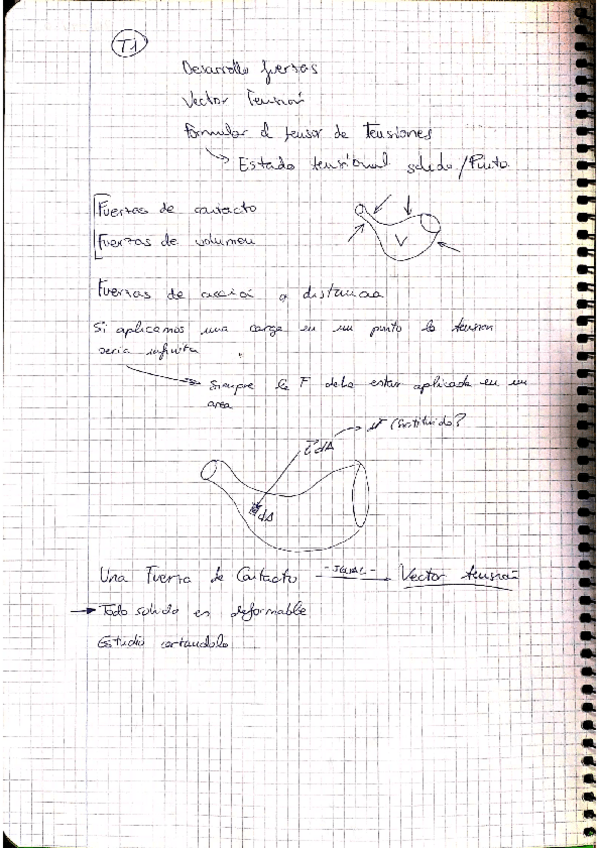 T1
Desarrollo fuerzas
Vector Tensión
Formular el tensor de Tensiones
Estado tensional solido / Punto
Fuerzas de contacto
Fuerzas de volumen
V
Fuerzas de acción a distancia
Si aplicamos una carga en un punto la tension
seria infinita
Siempre la F debe estar aplicada en un
area
dA
dA
Una Fuerza de Contacto - IGUAL - Vector tensión
Todo solido es deformable
Estudio cortandolo